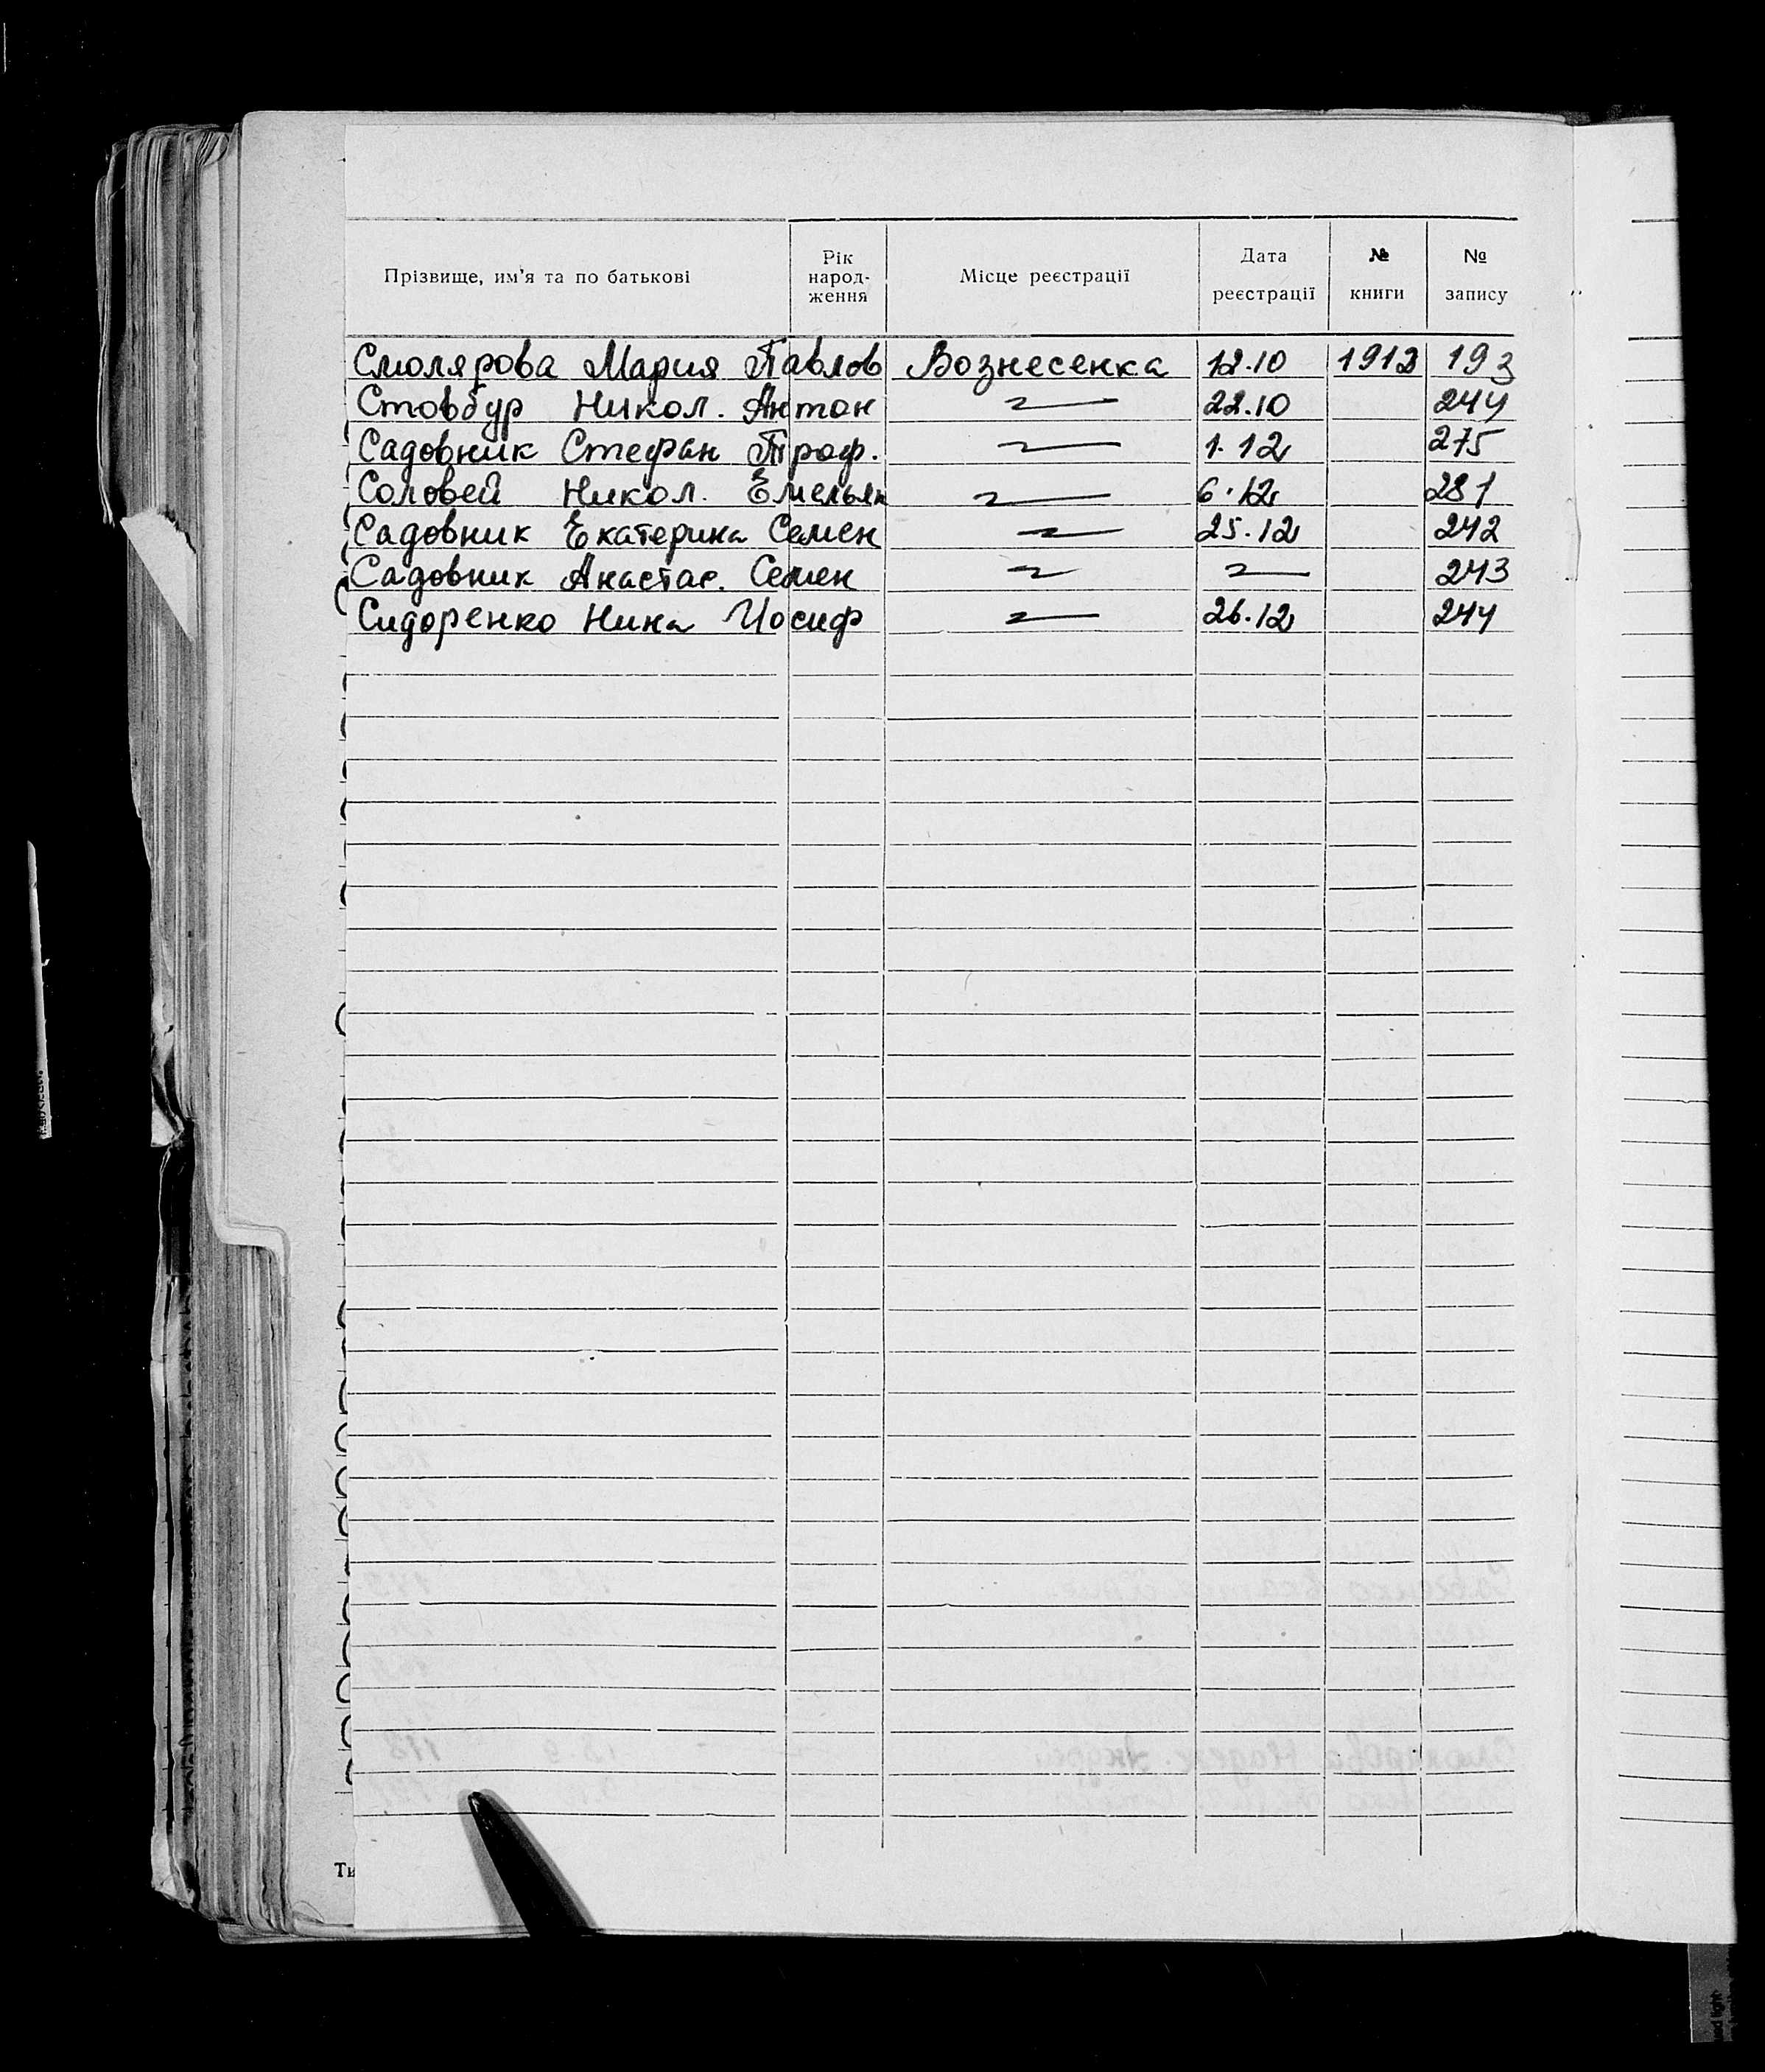 Прізвище, им'я та по батькові | Рік народ-ження | Місце реєстрації | Дата реєстрації | № книги | № запису
Смолярова Мария Павлов Вознесенка 12.10 1912 193
Стовбур Никол. Антон 〃 22.10 244
Садовник Стефан Троф. 〃 1.12 275
Соловей Никол. Емельян 〃 6.12 281
Садовник Екатерина Семен 〃 25.12 242
Садовник Анастас. Семен 〃 〃 243
Сидоренко Нина Иосиф 〃 26.12 244
Ти